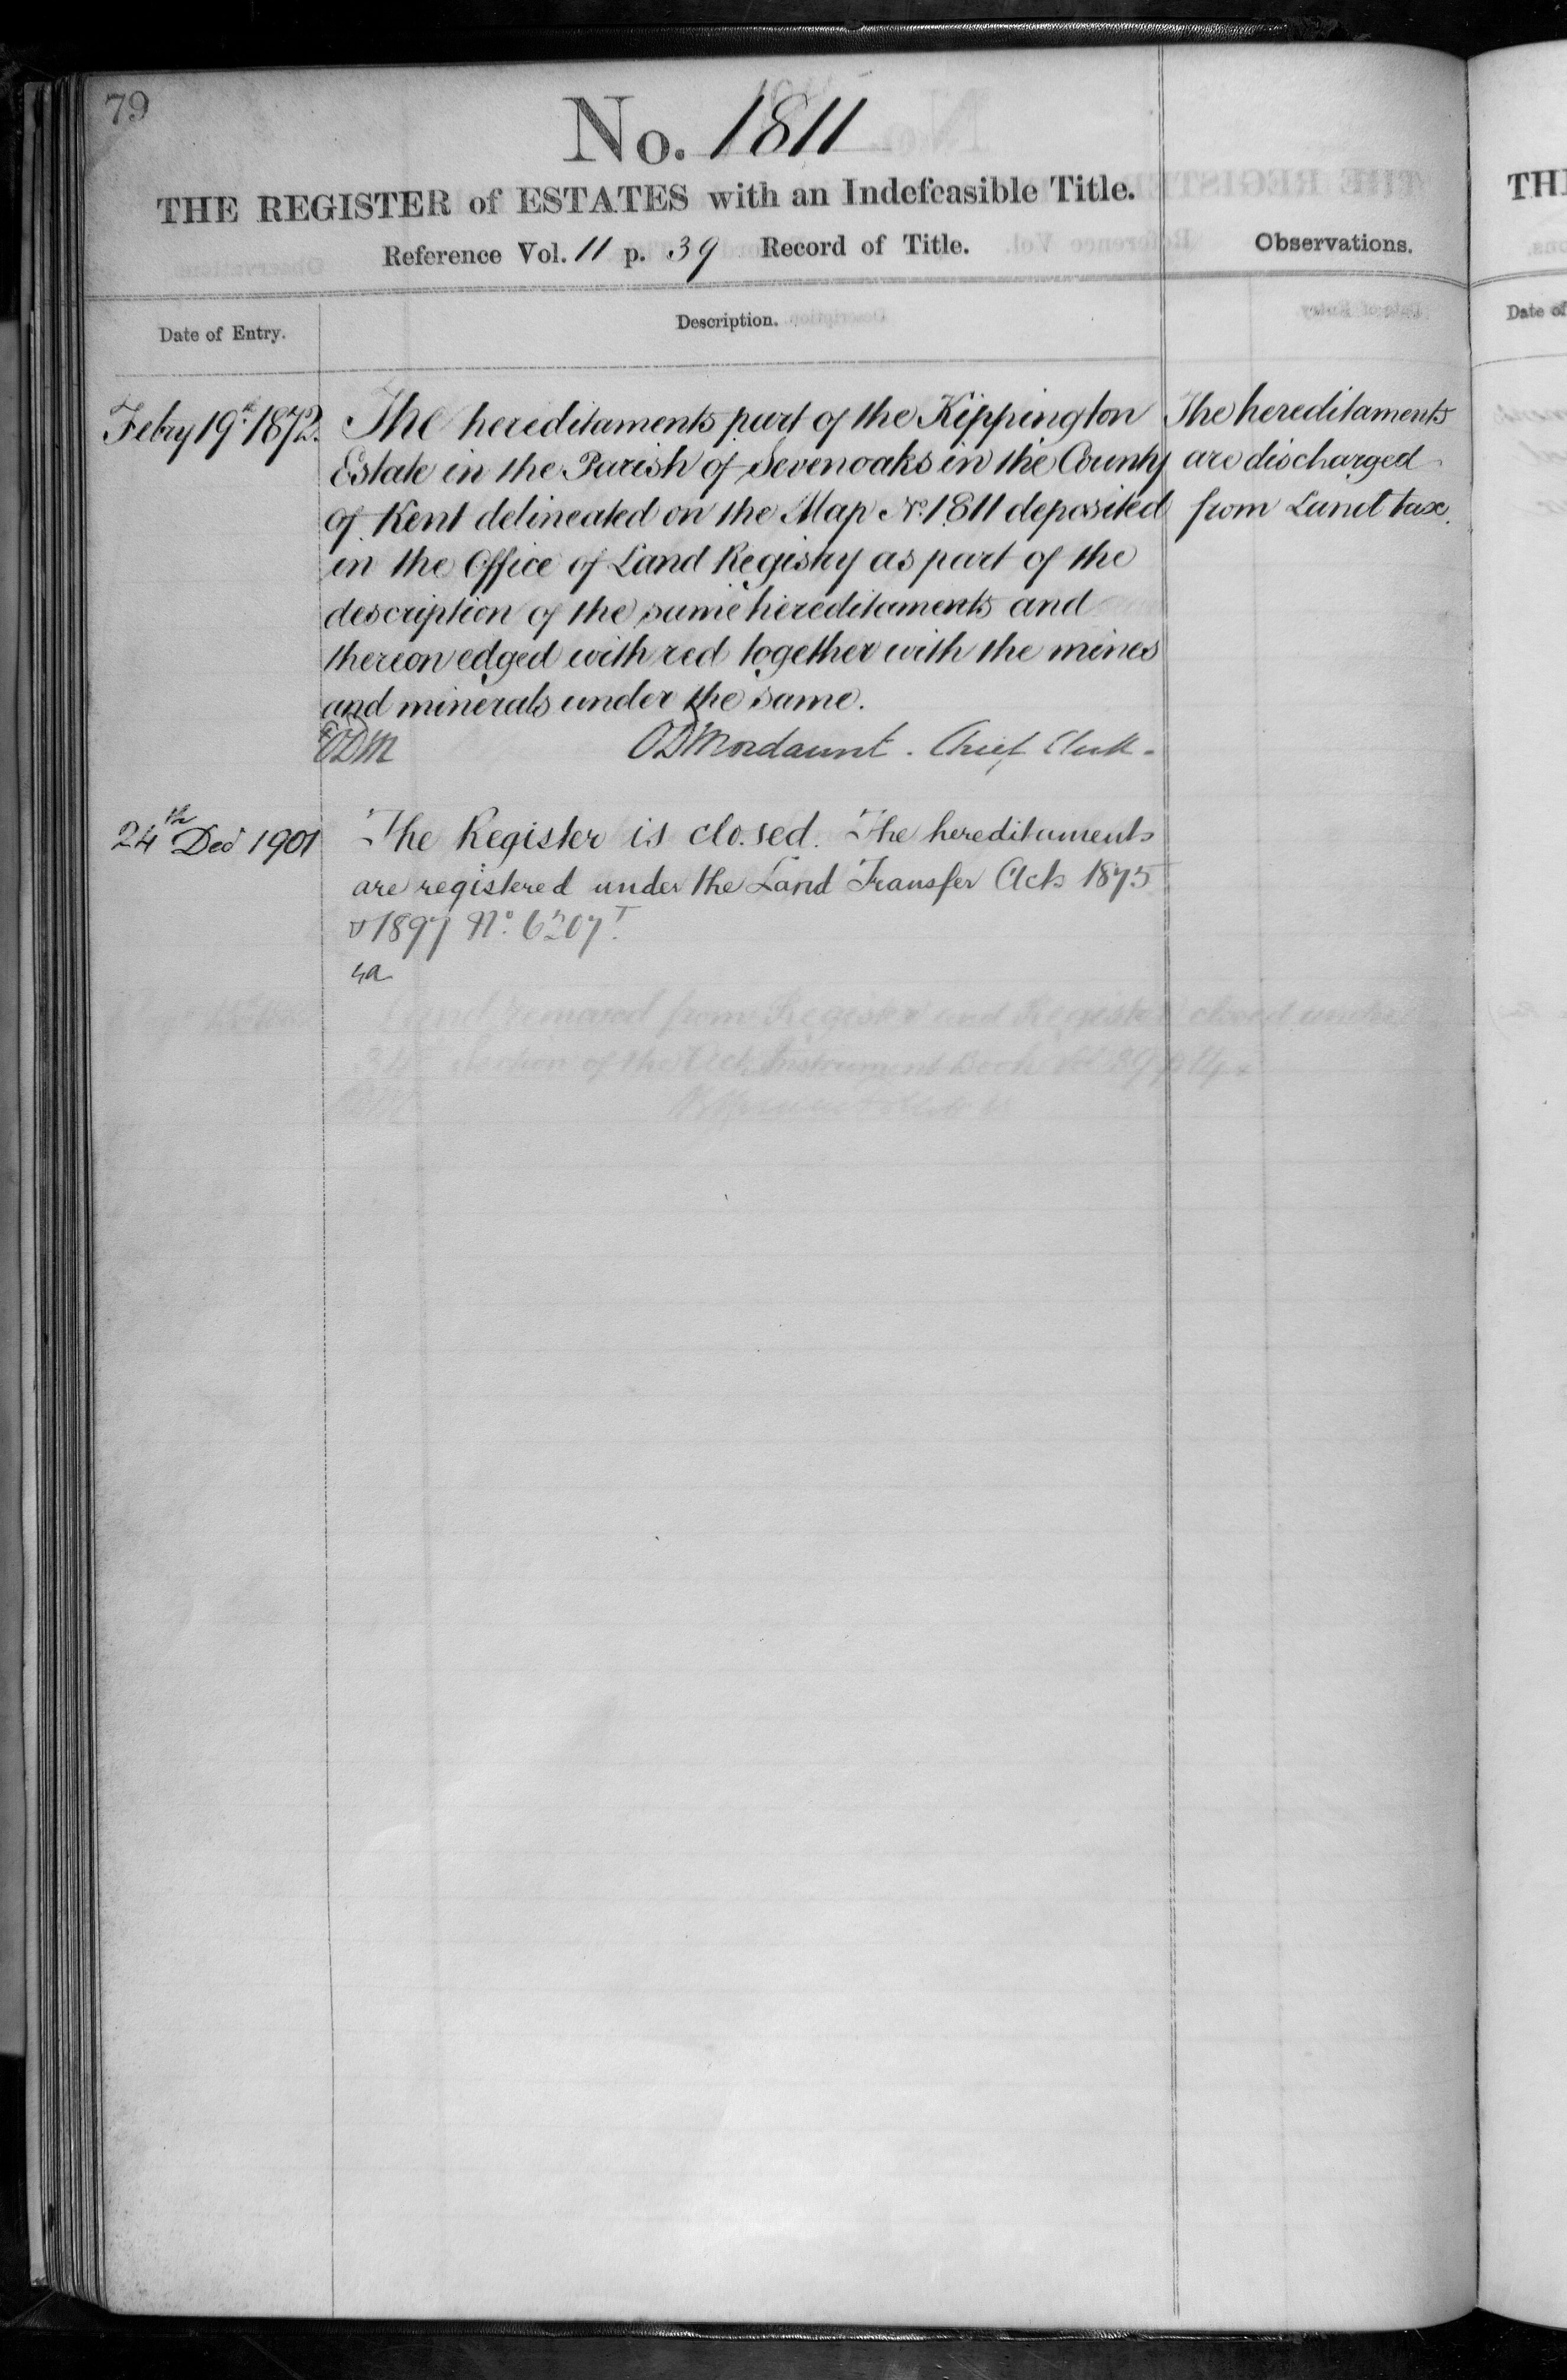 79
No. 1811
THE REGISTER of ESTATES with an Indefeasible Title.
Reference Vol. 11 p. 39 Record of Title.
Observations.
Date of Entry.
Description.
Febry 19th 1872.
The hereditaments part of the Kippington
Estate in the Parish of Sevenoaks in the County
of Kent delineated on the Map No. 1811 deposited
in the Office of Land Registry as part of the
description of the same hereditaments and
thereon edged with red together with the mines
and minerals under the same.
ODM
ODMordaunt. Chief Clerk.
The hereditaments
are discharged
from Land tax.
24th Decr 1901
The Register is closed. The hereditaments
are registered under the Land Transfer Acts 1875
& 1897 No.
Land removed from Register and Register closed under
34 Section of the Act Instrument Book Vol 89 p
TH
Date of